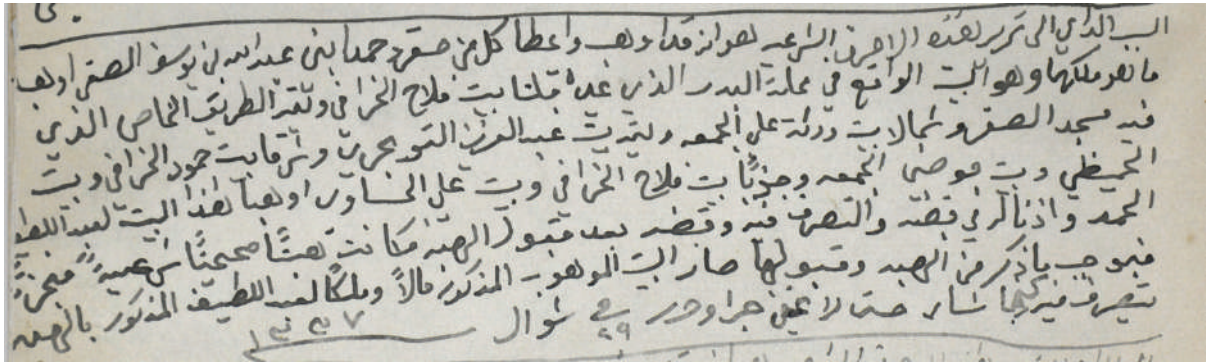 السبب الداعي الى تحرير هذه الاحرف الشرعيه هو انه قد اوهب واعطا كل من صقر وحمد ابني عبدالله بن يوسف الصقر اوهب
ما هو ملكهما وهو البيت الواقع في محلة البدر الذي يحده قبلتا بيت فلاح الخرافي وبيته الطريق الخاص الذي
فيه مسجد الصقر وشمالا بيت ورثة علي الجمعه وبيت عبدالعزيز التويجري وشرقا بيت حمود الخرافي وبيت
الحميظي وبيت موضي الجمعه وجنوبًا بيت فلاح الخرافي وبيت علي الحساوي اوهبا هذا البيت لعبد اللطيف
الحمد واذنا له في قبضه والتصرف فيه وقبضه بعد قبول الهبة فكانت هبتًا صحيحتًا شرعيةً منجزةً
فبموجب ما ذكر من الهبه وقبولها صار البيت الموهوب المذكور مالاً وملكًا لعبد اللطيف المذكور بالهبه
يتصرف فيه كيفما شاء حتى لا يخفى جرا وحرر في ٢٩ شوال ١٣٣٧